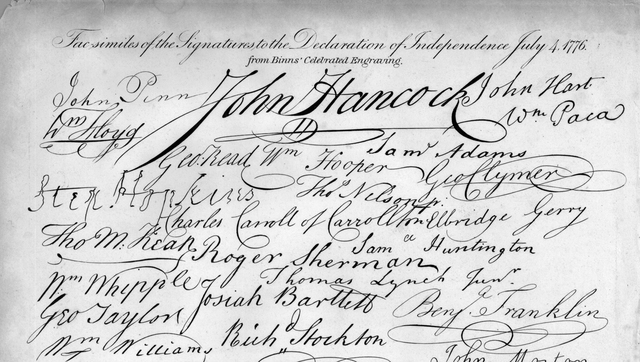 Fac similes of the Signatures to the Declaration of Independence July 4. 1776.
from Binns' Celebrated Engraving.
John Penn John Hancock John Hart
Wm Floyd Wm Paca
Geo Read Wm Hooper Saml Adams
Step. Hopkins Thos Nelson jr. Geo Clymer
Charles Carroll of Carrollton Elbridge Gerry
Tho M. Kean Roger Sherman Saml Huntington
Wm Whipple Thomas Lynch Junr.
Josiah Bartlett Benj. Franklin
Geo Taylor Richd Stockton
Wm Williams John Morton